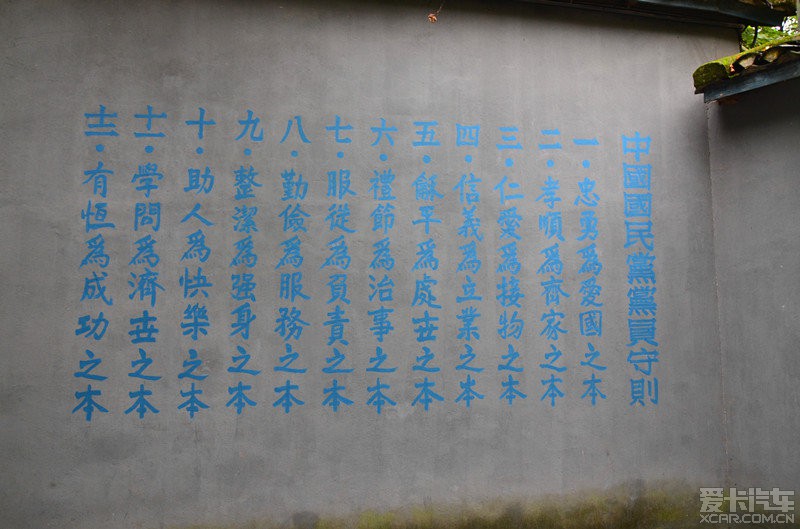 中國國民黨黨員守則
一·忠勇為愛國之本
二·孝順為齊家之本
三·仁愛為接物之本
四·信義為立業之本
五·龢平為處世之本
六·禮節為治事之本
七·服從為負責之本
八·勤儉為服務之本
九·整潔為强身之本
十·助人為快樂之本
十一·學問為濟世之本
十二·有恆為成功之本
爱卡汽车
XCAR.COM.CN